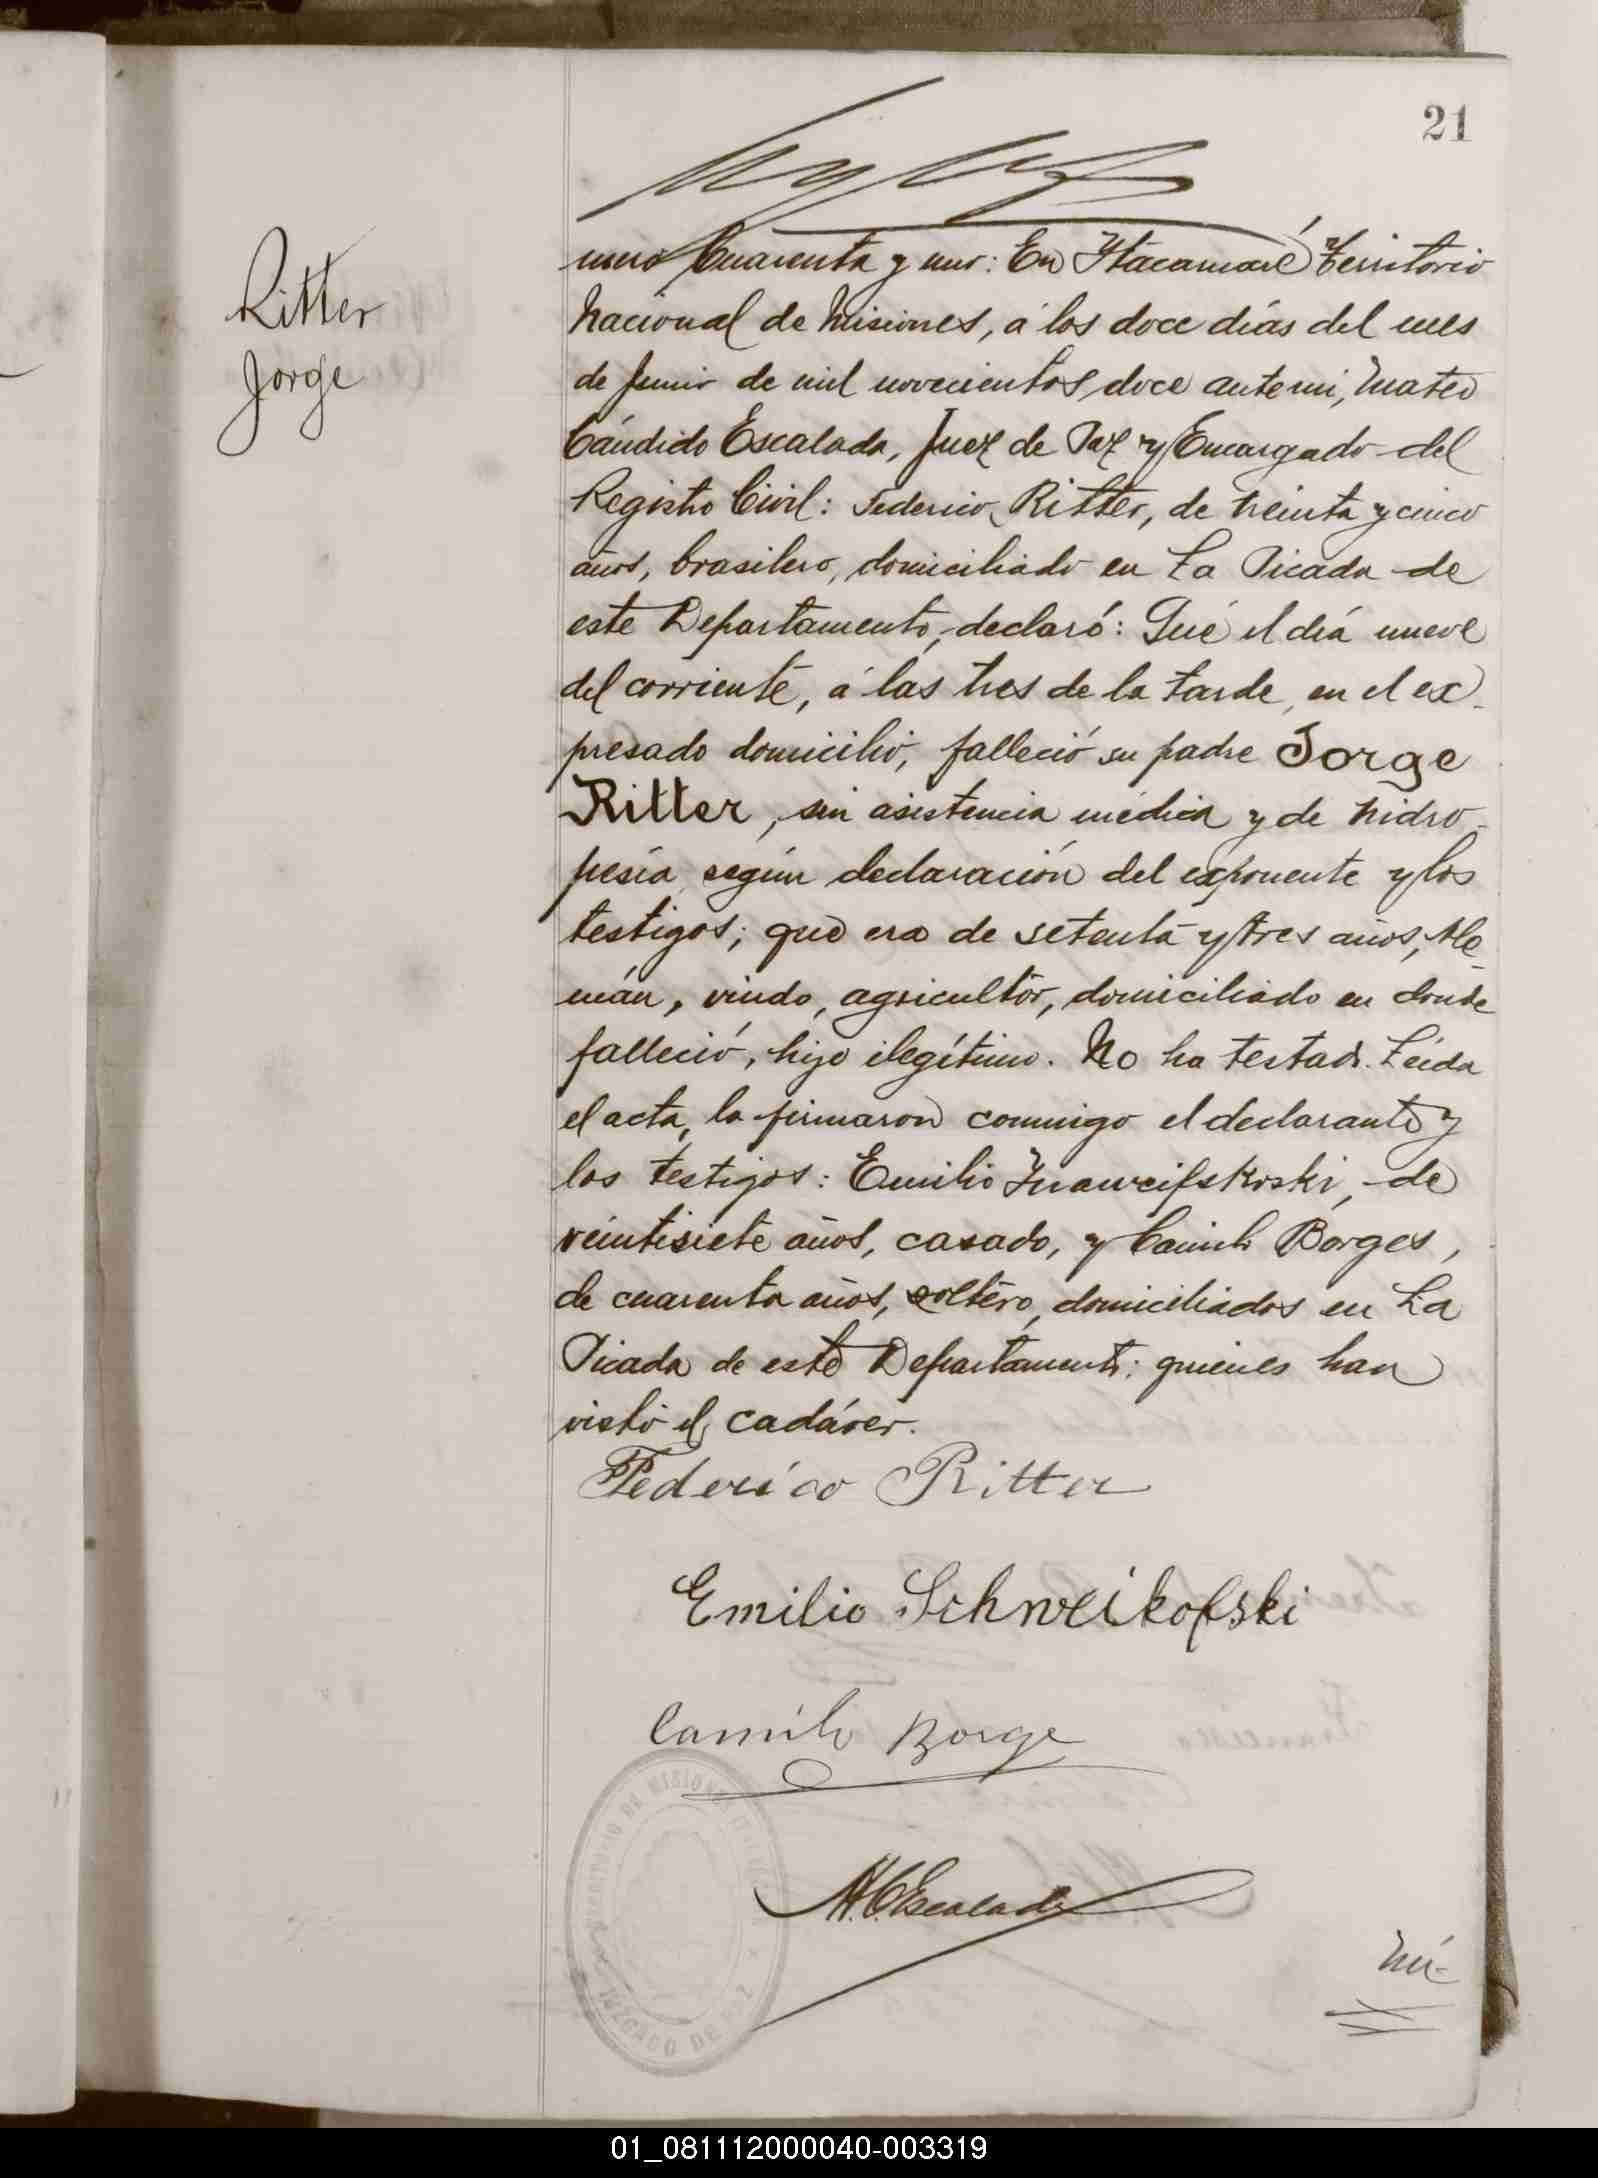 21
Ritter
Jorge
mero Cuarenta y uno: En Itacaruaré Territorio
Nacional de Misiones, á los doce días del mes
de Junio de mil novecientos doce ante mi, Mateo
Cándido Escalada, Juez de Paz y Encargado del
Registro Civil: Federico Ritter, de treinta y cinco
años, brasilero, domiciliado en La Picada de
este Departamento, declaró: Que el día nueve
del corriente, á las tres de la tarde, en el ex-
presado domicilio, falleció su padre Jorge
Ritter, sin asistencia médica y de hidro-
pesía según declaración del exponente y los
testigos; que era de setenta y tres años, Ale-
mán, viudo, agricultor, domiciliado en donde
falleció, hijo ilegítimo. No ha testado. Leída
el acta, la firmaron conmigo el declarante y
los testigos: Emilio de
veintisiete años, casado, y Camilo Borges,
de cuarenta años, soltero, domiciliados en La
Picada de este Departamento: quienes han
visto el cadáver.
Federico Ritter
Emilio Schweikofski
Camilo Borge
TERRITORIO DE MISIONES
JUZGADO DE PAZ
M. C. Escalada
Nú-
01_081112000040-003319